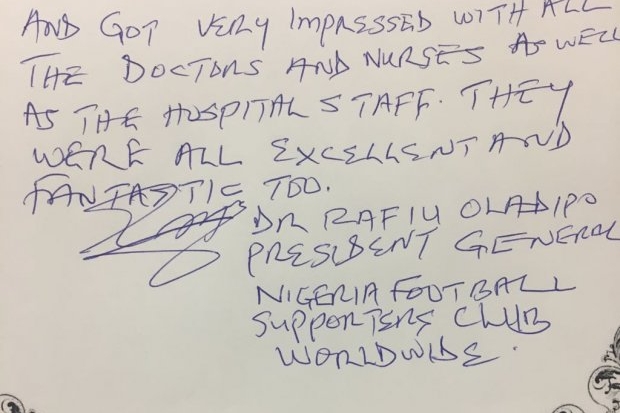 AND GOT VERY IMPRESSED WITH ALL
THE DOCTORS AND NURSES AS WELL
AS THE HOSPITAL STAFF. THEY
WERE ALL EXCELLENT AND
FANTASTIC TOO.
DR RAFIU OLADIPO
PRESIDENT GENERAL
NIGERIA FOOTBALL
SUPPORTERS CLUB
WORLDWIDE.